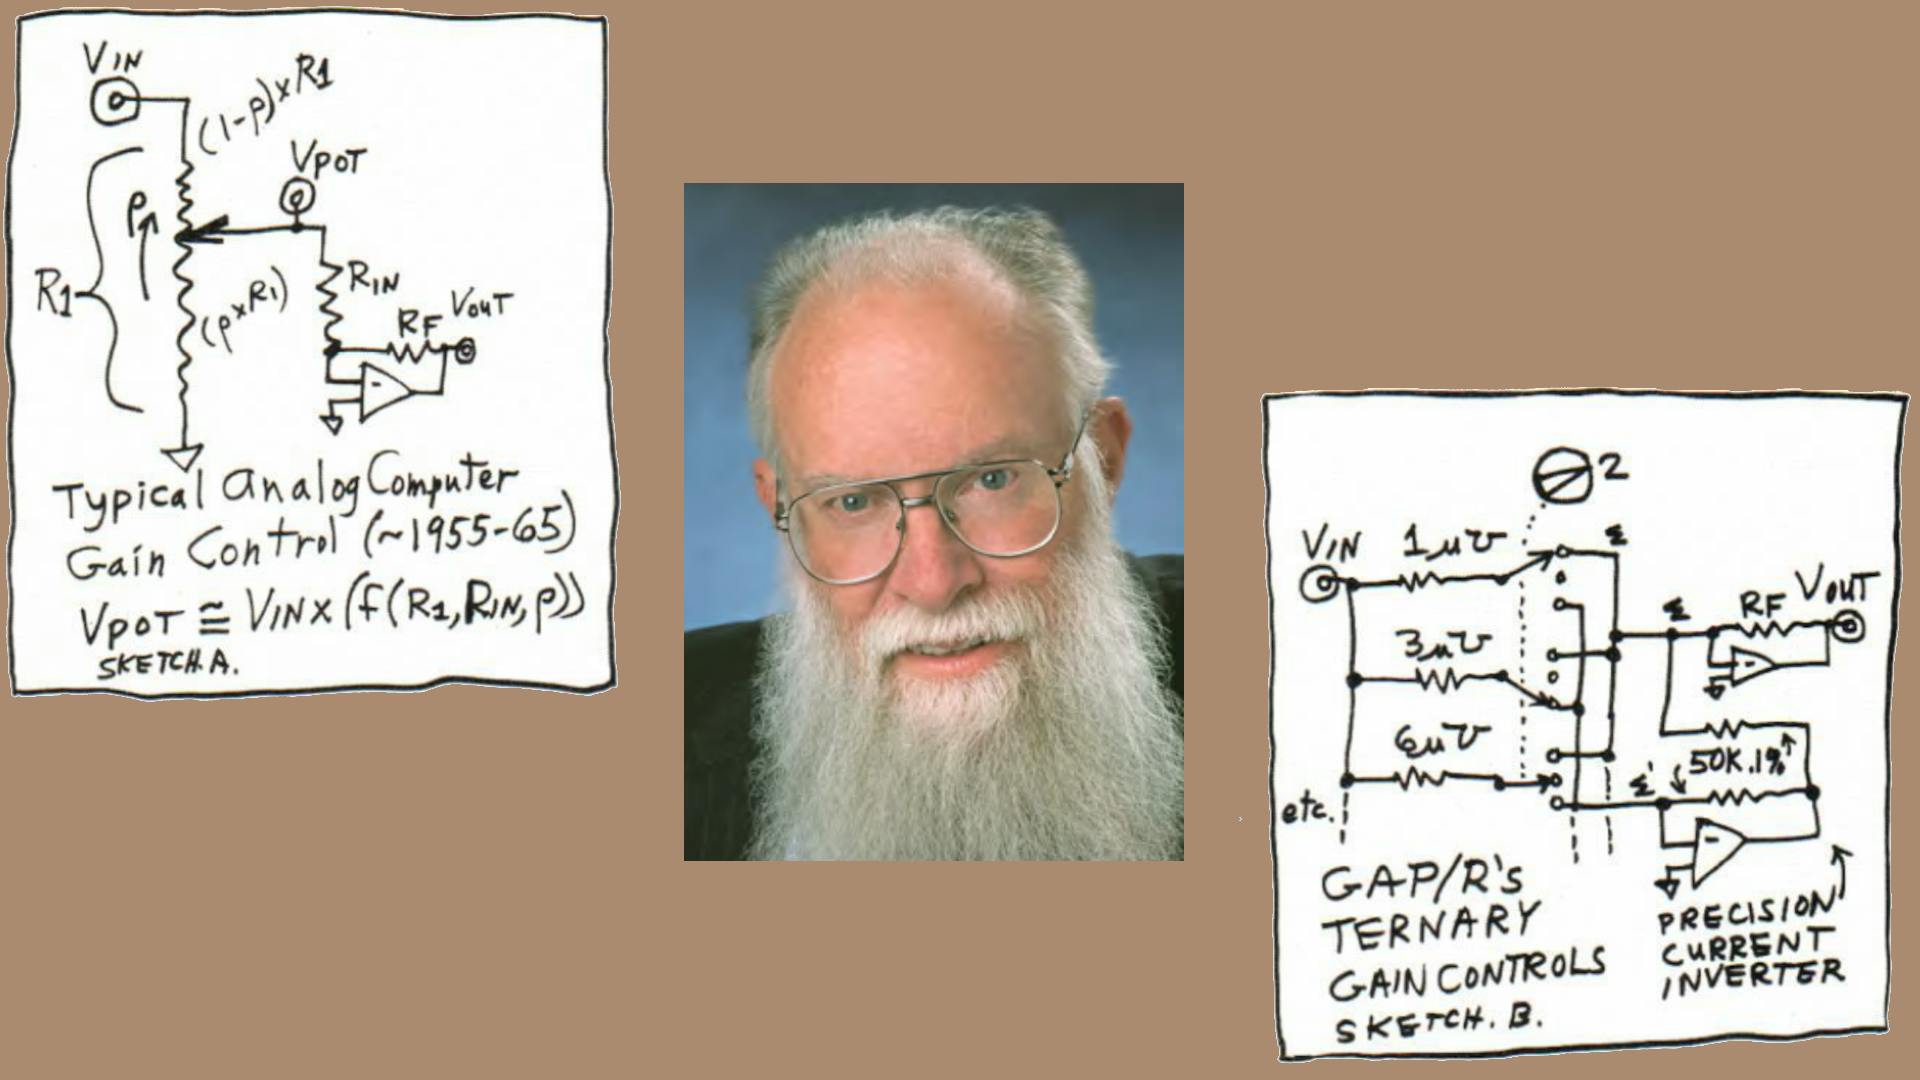 VIN
(1-p)×R1
VPOT
P
R1
(p×R1)
RIN
RF
VOUT
-
Typical Analog Computer
Gain Control (~1955-65)
VPOT ≅ VIN×(f(R1,RIN,p))
SKETCH.A.
2
VIN
1µ℧
Σ
3µ℧
Σ
RF
VOUT
-
6µ℧
50K.1%
Σ'
etc.
-
GAP/R's
TERNARY
GAIN CONTROLS
SKETCH. B.
PRECISION
CURRENT
INVERTER